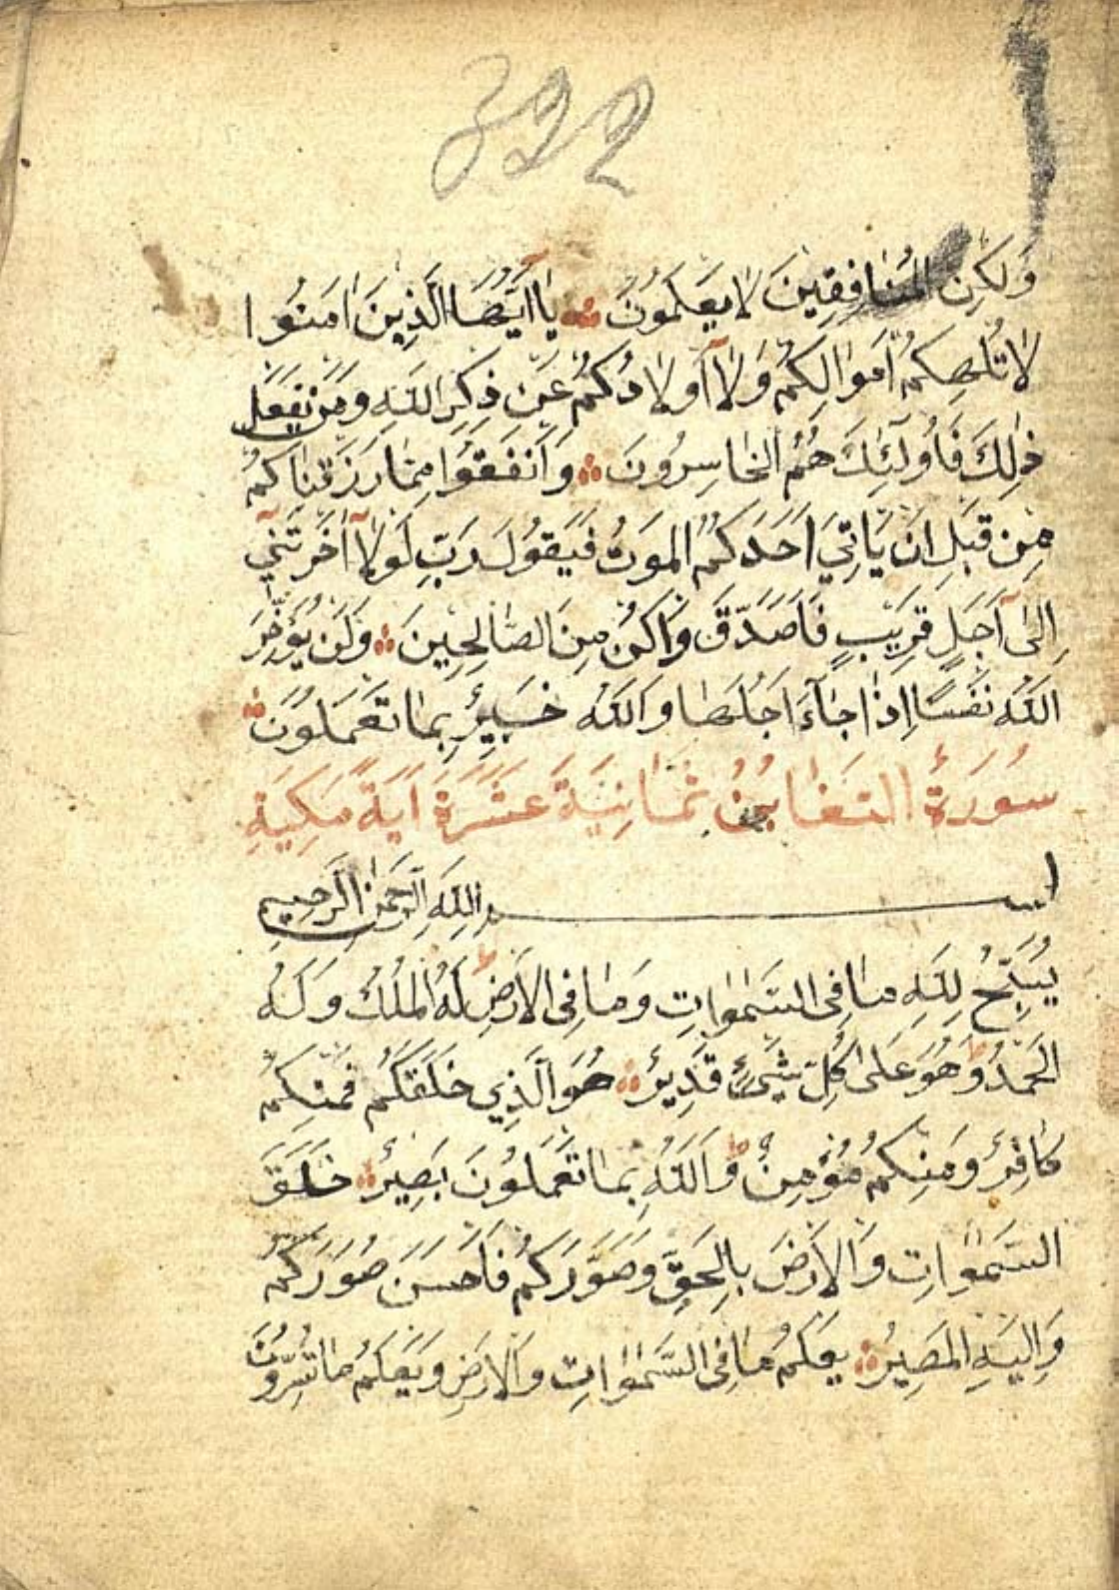 322
وَلَكِنَّ المُنَافِقِينَ لَا يَعْلَمُونَ يَا أَيُّهَا الَّذِينَ امَنُوا
لَا تُلْهِكُمْ اَمْوَالُكُمْ وَلَا أَوْلَادُكُمْ عَنْ ذِكْرِ اللَّهِ وَمَنْ يَفْعَلْ
ذٰلِكَ فَأُولَئِكَ هُمُ الْخَاسِرُونَ وَاَنْفِقُوا مِمَّا رَزَقْنَاكُمْ
مِنْ قَبْلِ اَنْ يَاتِيَ اَحَدَكُمُ الْمَوْتُ فَيَقُولَ رَبِّ لَوْلَا أَخَّرْتَنِي
اِلَى أَجَلٍ قَرِيبٍ فَاَصَّدَّقَ وَاَكُنْ مِنَ الصَّالِحِينَ وَلَنْ يُؤَخِّرَ
اللَّهُ نَفْسًا اِذَا جَاءَ اَجَلُهَا وَاللَّهُ خَبِيرٌ بِمَا تَعْمَلُونَ
سُورَةُ التَّغَابُنُ ثَمَانِيَةَ عَشَرَةَ آيَةً مَكِّيَّةٌ
بسم اللَّهِ الرَّحْمٰنِ الرَّحِيمِ
يُسَبِّحُ لِلَّهِ مَا فِي السَّمٰوَاتِ وَمَا فِي الْاَرْضِ ط لَهُ الْمُلْكُ وَلَهُ
الْحَمْدُ ط وَهُوَ عَلَى كُلِّ شَيْءٍ قَدِيرٌ هُوَ الَّذِي خَلَقَكُمْ فَمِنْكُمْ
كَافِرٌ وَمِنْكُمْ مُؤْمِنٌ ط وَاللَّهُ بِمَا تَعْمَلُونَ بَصِيرٌ خَلَقَ
السَّمٰوَاتِ وَالْاَرْضَ بِالْحَقِّ وَصَوَّرَكُمْ فَاَحْسَنَ صُوَرَكُمْ
وَاِلَيْهِ الْمَصِيرُ يَعْلَمُ مَا فِي السَّمٰوَاتِ وَالْاَرْضِ وَيَعْلَمُ مَا تُسِرُّونَ